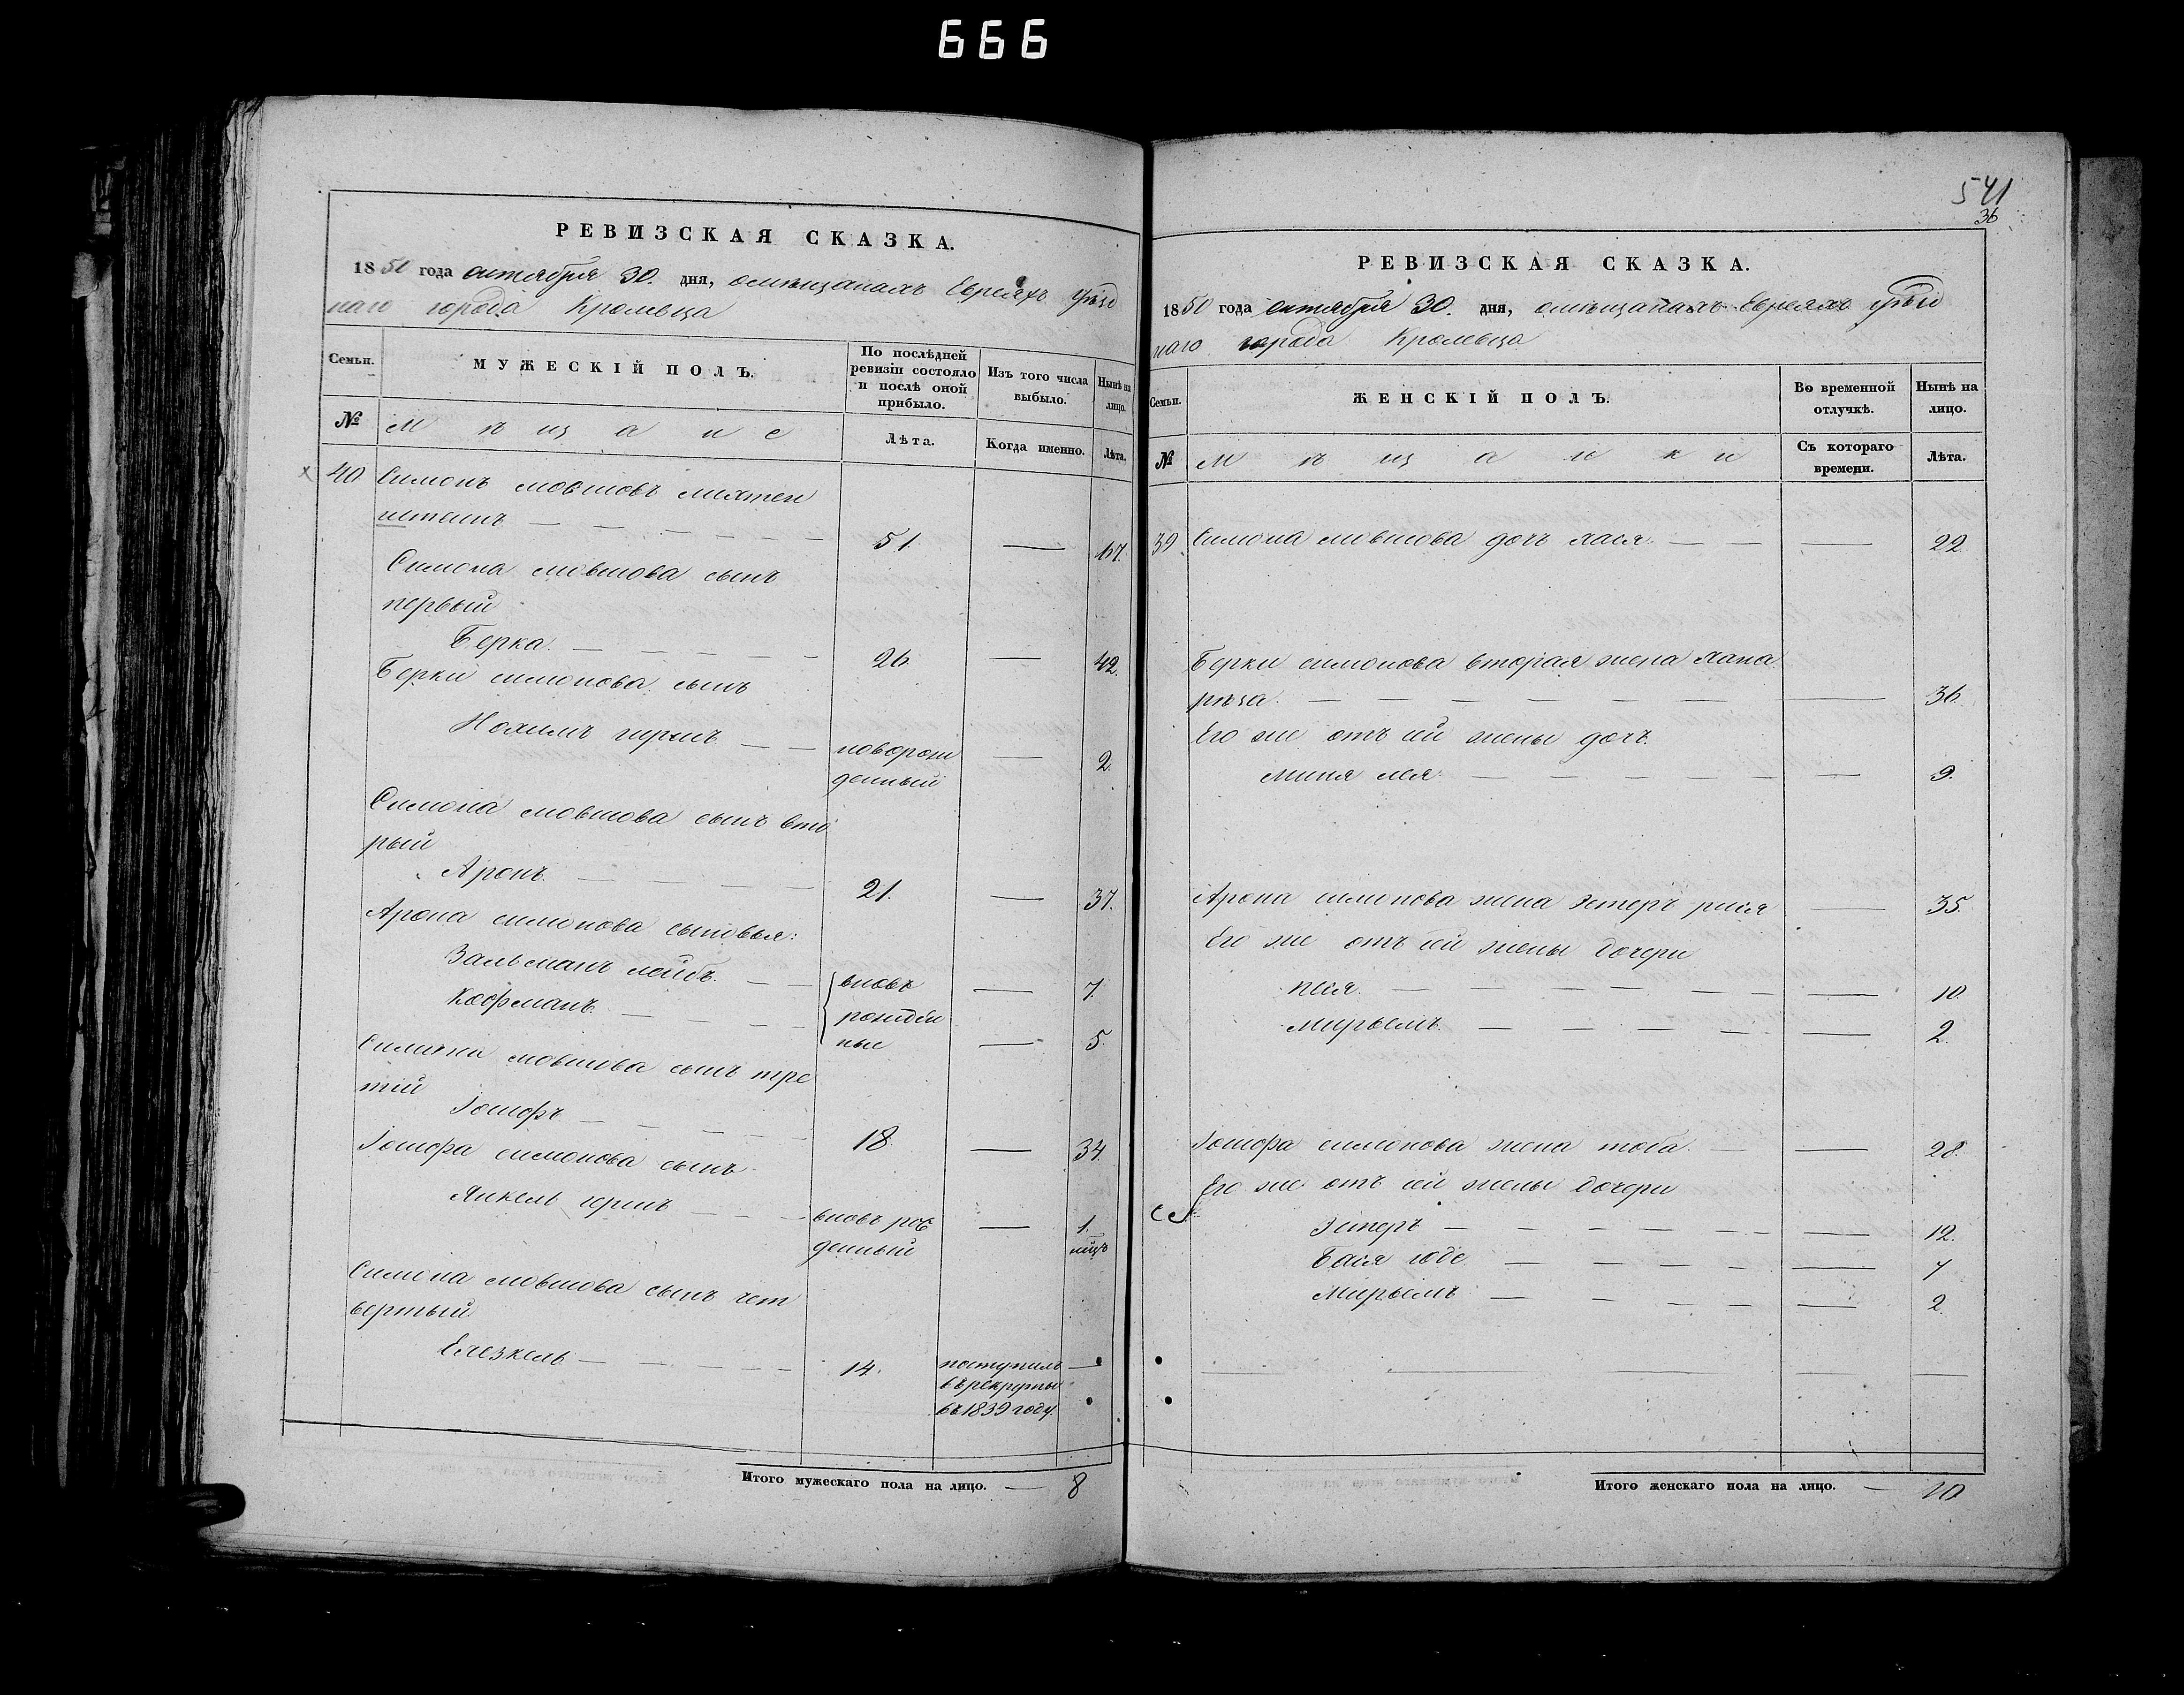 666
РЕВИЗСКАЯ СКАЗКА.
1850 года октября 30. дня, о мѣщанахъ Евреяхъ уѣзд
наго города Кролевца
Семьи.
МУЖЕСКІЙ ПОЛЪ.
По послѣдней
ревизіи состояло
и послѣ оной
прибыло.
Изъ того числа
выбыло.
Нынѣ на
лицо.
№
Мѣщане
Лѣта.
Когда именно.
Лѣта.
40 Симонъ мовшовъ
штеинъ 51. 67.
Симона мовшова сынъ
первый
Берка. 26 42.
Берки симонова сынъ
Нохимъ гиршъ новорож 2.
денный
Симона мовшова сынъ вто
рый
Аронъ. 21. 37.
Арона симонова сыновья:
Зальманъ лейбъ. вновь 7.
Кофманъ рожден
ные 5.
Симона мовшова сынъ тре
тій
Іосифъ 18. 34.
Іосифа симонова сынъ
Янкель гиршъ вновь рож 1.
денный
Симона мовшова сынъ чет
вертый
Елезкель 14. поступилъ
въ рекруты
въ 1839 году.
Итого мужескаго пола на лицо. 8
541
36
РЕВИЗСКАЯ СКАЗКА.
1850 года октября 30. дня, о мѣщанахъ Евреяхъ уѣзд
наго города Кролевца
Семьи.
ЖЕНСКІЙ ПОЛЪ.
Во временной
отлучкѣ.
Нынѣ на
лицо.
№
Мѣщанки
Съ котораго
времени.
Лѣта.
39 Симона мовшова дочь хася. 22
Берки симонова вторая жена хана
рѣза. 36.
Его же отъ ней жены дочь.
миня лея 9.
Арона симонова жена эстеръ рися 35.
Его же отъ ней жены дочери
песя. 10.
мирьемъ 2.
Іосифа симонова жена тоба. 28.
Его же отъ ней жены дочери
Эстеръ 12.
Бася юде 7
Мирьемъ 2.
Итого женскаго пола на лицо. 10